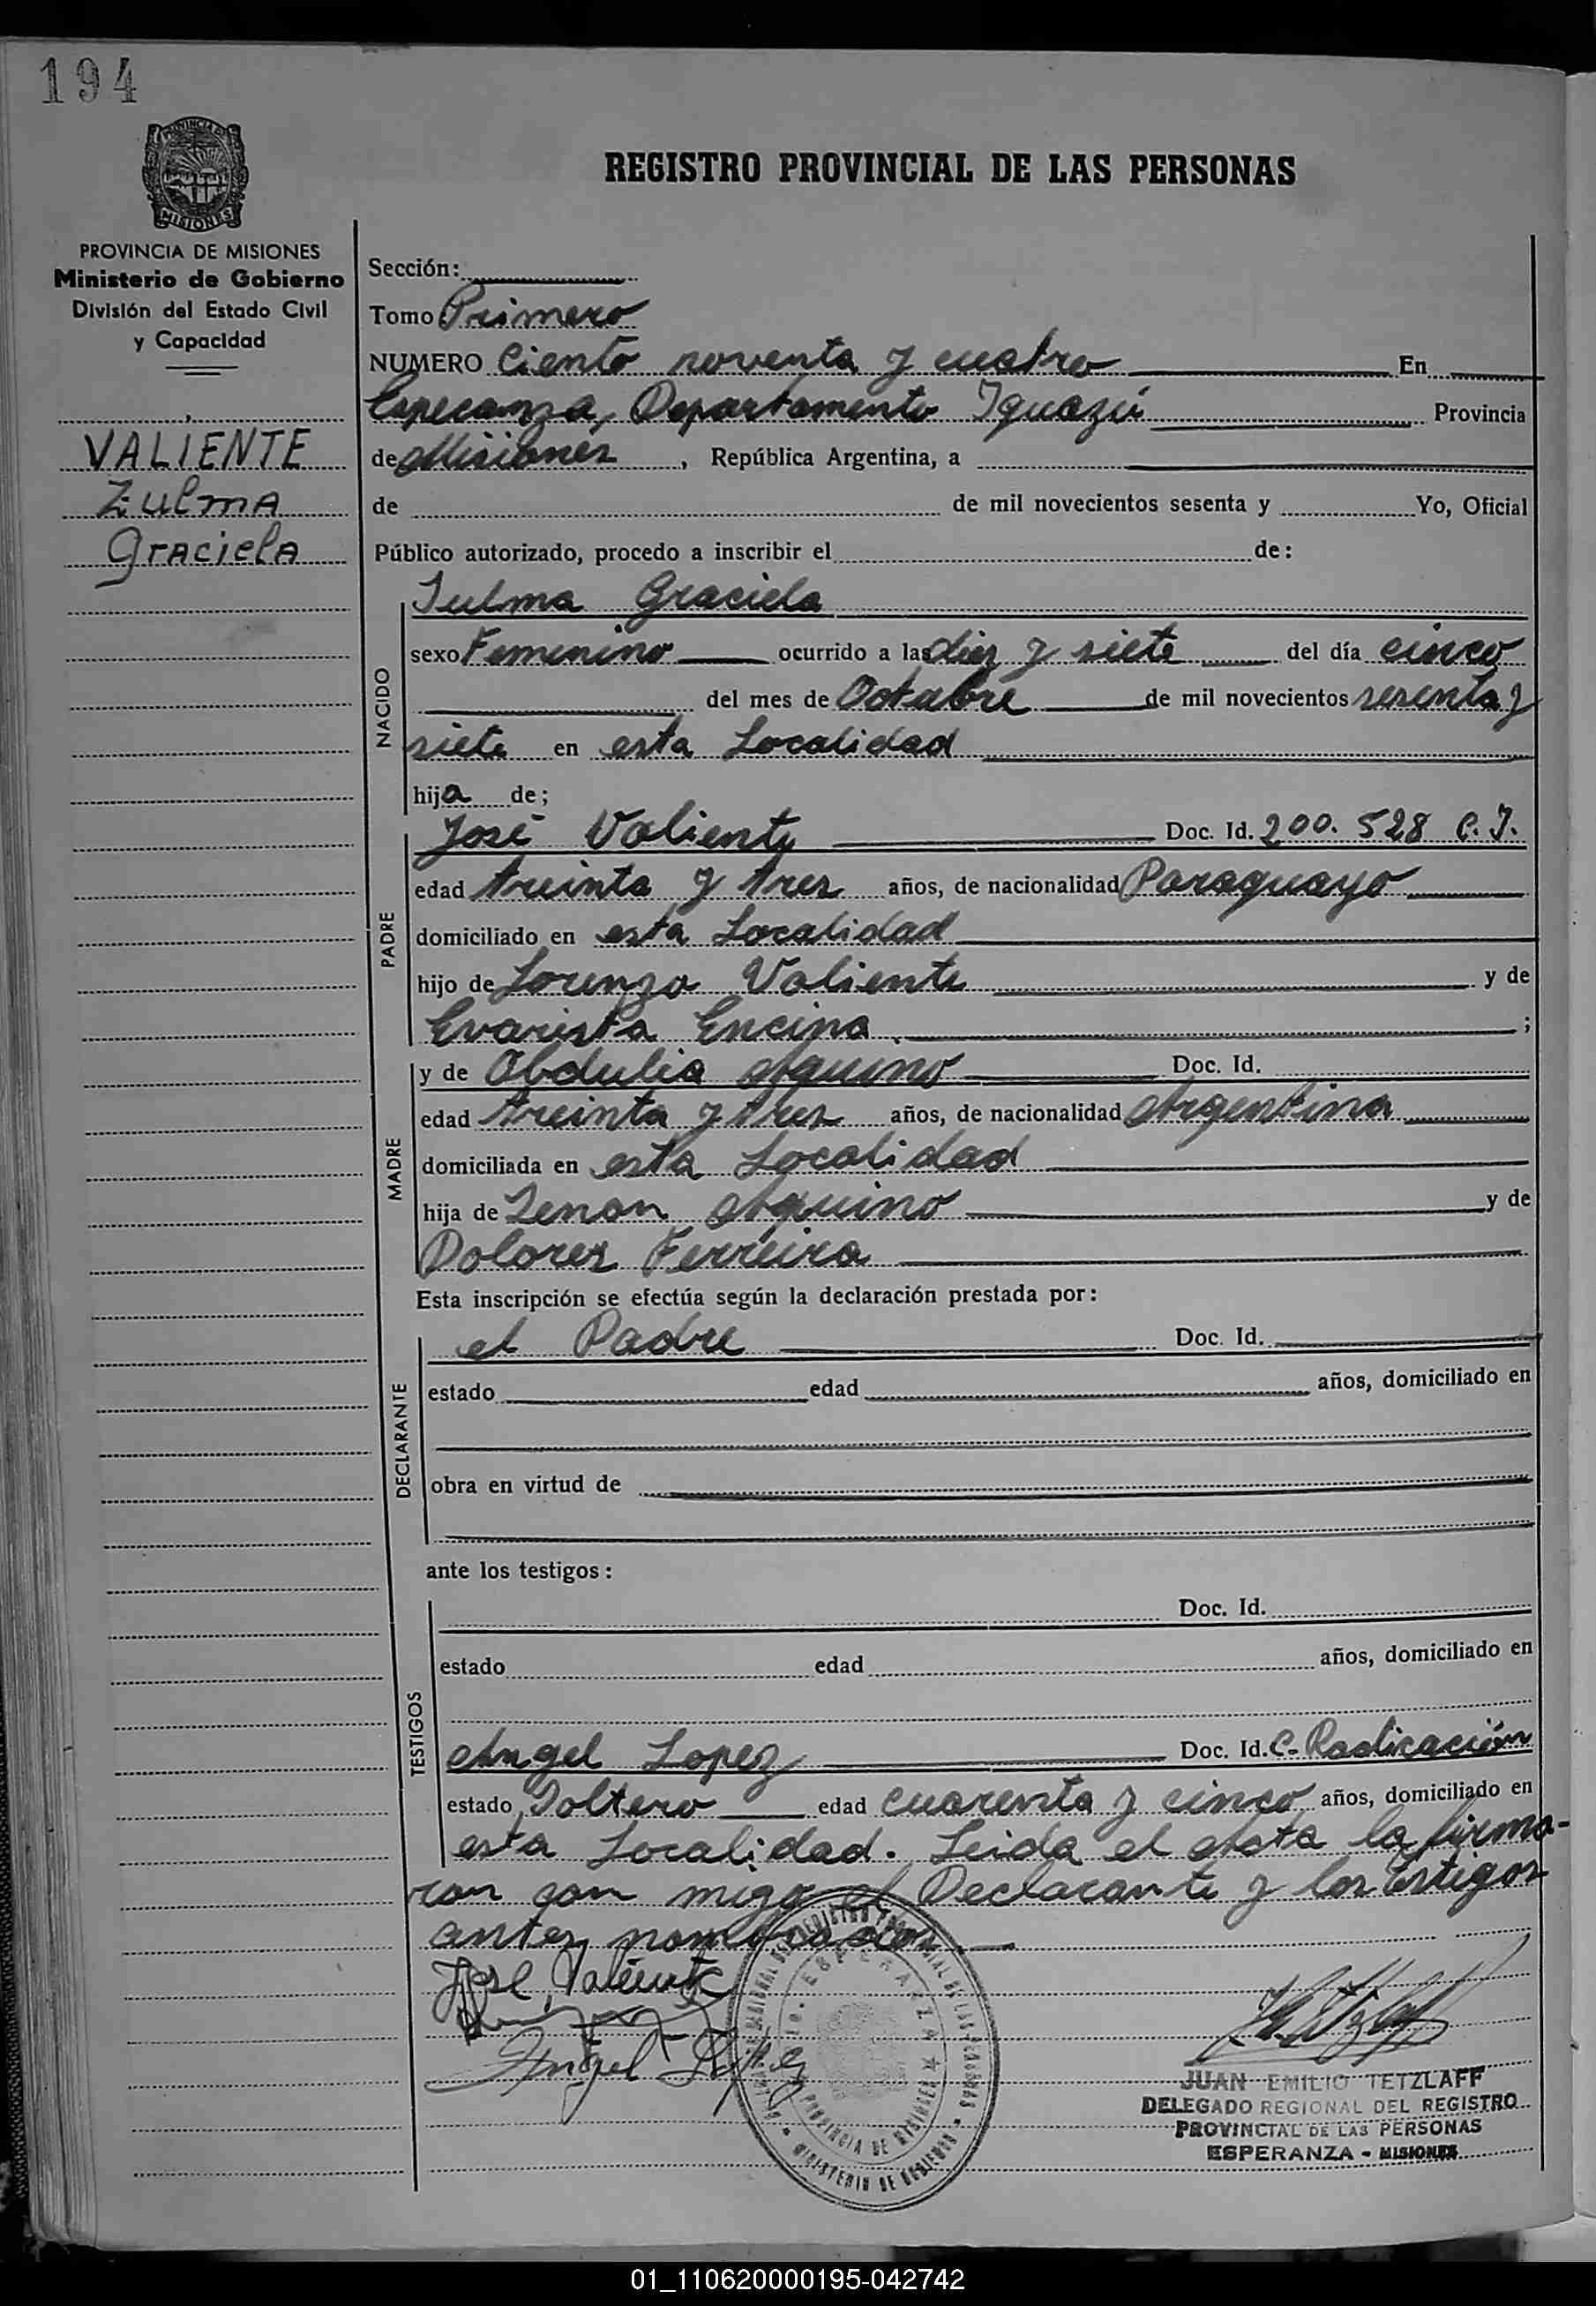 194
PROVINCIA DE
MISIONES
REGISTRO PROVINCIAL DE LAS PERSONAS
PROVINCIA DE MISIONES
Ministerio de Gobierno
División del Estado Civil
y Capacidad
VALIENTE
Zulma
Graciela
Sección:
Tomo Primero
NUMERO Ciento noventa y cuatro En
Esperanza, Departamento Iguazú Provincia
de Misiones, República Argentina, a
de de mil novecientos sesenta y Yo, Oficial
Público autorizado, procedo a inscribir el de:
NACIDO
Zulma Graciela
sexo Femenino ocurrido a las diez y siete del día cinco
del mes de Octubre de mil novecientos sesenta y
siete en esta Localidad
hija de;
PADRE
José Valiente Doc. Id. 200.528 C.I.
edad treinta y tres años, de nacionalidad Paraguayo
domiciliado en esta Localidad
hijo de Lorenzo Valiente y de
Evarista Encina ;
MADRE
y de Obdulia Aquino Doc. Id.
edad treinta y tres años, de nacionalidad Argentina
domiciliada en esta Localidad
hija de Zenon Aquino y de
Dolores Ferreira
Esta inscripción se efectúa según la declaración prestada por:
DECLARANTE
el Padre Doc. Id.
estado edad años, domiciliado en
obra en virtud de
ante los testigos:
TESTIGOS
Doc. Id.
estado edad años, domiciliado en
Angel Lopez Doc. Id. C- Radicación
estado Soltero edad cuarenta y cinco años, domiciliado en
esta Localidad. Leida el Acta la firma-
ron con migo el Declarante y los testigos
antes nombrados
José Valiente
Angel Lopez
ESPERANZA
PROVINCIA DE MISIONES
MINISTERIO DE GOBIERNO
JUAN EMILIO TETZLAFF
DELEGADO REGIONAL DEL REGISTRO
PROVINCIAL DE LAS PERSONAS
ESPERANZA - MISIONES
01_110620000195-042742